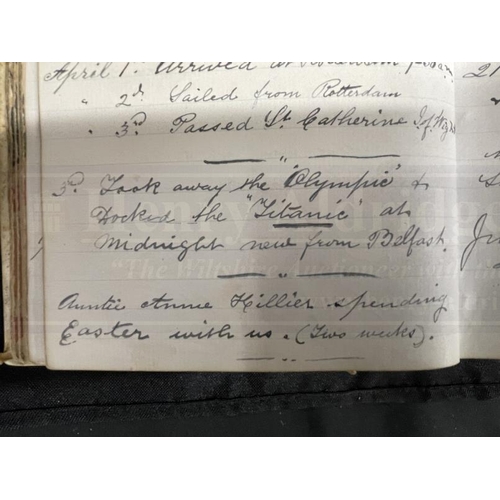 April 1. Arrived at Rotterdam
" 2nd Sailed from Rotterdam
" 3rd Passed St. Catherine I.of.Wight
3rd. Took away the "Olympic" &
Docked the "Titanic" at
Midnight new from Belfast.
Auntie Annie Hillier spending
Easter with us. (Two weeks).
Henry Aldridge
"The Wiltshire Auctioneer with